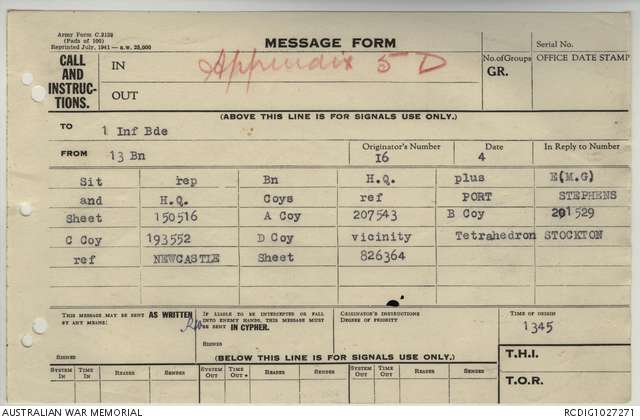 Army Form C.2128
(Pads of 100)
Reprinted July, 1941—a.w. 25,000
MESSAGE FORM
Serial No.
CALL AND INSTRUC-TIONS.
IN
Appendix 5 D
No. of Groups
GR.
OFFICE DATE STAMP
OUT
(ABOVE THIS LINE IS FOR SIGNALS USE ONLY.)
TO 1 Inf Bde
FROM 13 Bn
Originator's Number 16
Date 4
In Reply to Number
Sit rep Bn H.Q. plus E(M.G)
and H.Q. Coys ref PORT STEPHENS
Sheet 150516 A Coy 207543 B Coy 201529
C Coy 193552 D Coy vicinity Tetrahedron STOCKTON
ref NEWCASTLE Sheet 826364
THIS MESSAGE MAY BE SENT AS WRITTEN BY ANY MEANS.
IF LIABLE TO BE INTERCEPTED OR FALL INTO ENEMY HANDS, THIS MESSAGE MUST BE SENT IN CYPHER.
ORIGINATOR'S INSTRUCTIONS
DEGREE OF PRIORITY
TIME OF ORIGIN
1345
SIGNED
SIGNED
(BELOW THIS LINE IS FOR SIGNALS USE ONLY.)
T.H.I.
SYSTEM IN TIME IN READER SENDER SYSTEM OUT TIME OUT READER SENDER SYSTEM OUT TIME OUT READER SENDER
T.O.R.
AUSTRALIAN WAR MEMORIAL
RCDIG1027271